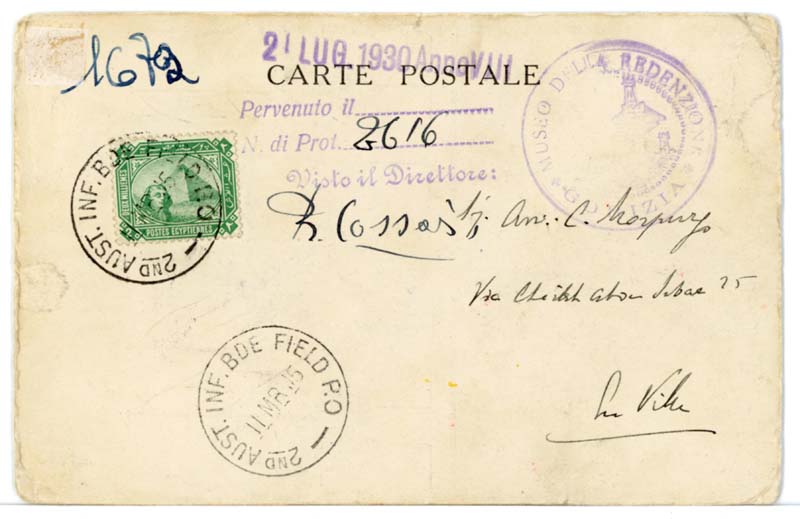 1679
21 LUG. 1930 Anno VIII
CARTE POSTALE
Pervenuto il
N. di Prot. 2616
Visto il Direttore:
R. Cossar
MUSEO DELLA REDENZIONE
Avv. C. Morpurgo
Via Cheikh Abou 25
En Ville
2ND AUST. INF. BDE FIELD P.O
DEUX MILLIEMES
POSTES EGYPTIENNES
2ND AUST. INF. BDE FIELD P.O
11 MR 15